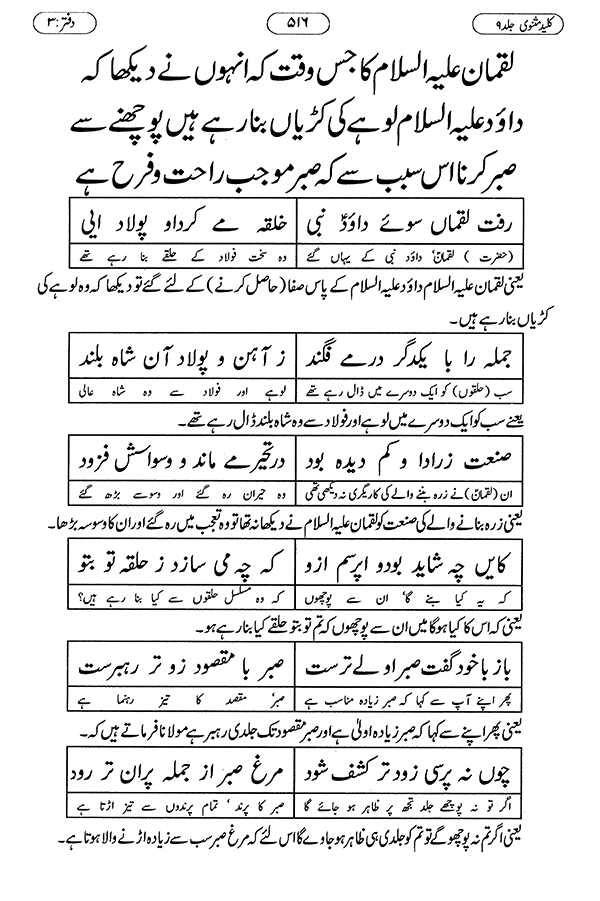 کلید مثنوی جلد ۹ ۵۱۶ دفتر: ۳
لقمان علیہ السلام کا جس وقت کہ انہوں نے دیکھا کہ
داؤد علیہ السلام لوہے کی کڑیاں بنا رہے ہیں پوچھنے سے
صبر کرنا اس سبب سے کہ صبر موجب راحت و فرح ہے
رفت لقماں سوئے داوٗد نبی خلقہ مے کرداو پولاد ایی
(حضرت) لقمانؑ داوٗد نبی کے یہاں گئے وہ سخت فولاد کے حلقے بنا رہے تھے
یعنی لقمان علیہ السلام داؤد علیہ السلام کے پاس صفا (حاصل کرنے) کے لئے گئے تو دیکھا کہ وہ لوہے کی
کڑیاں بنا رہے ہیں۔
جملہ را با یکدگر درمے فگند ز آہن و پولاد آن شاہ بلند
سب (حلقوں) کو ایک دوسرے میں ڈال رہے تھے لوہے اور فولاد سے وہ شاہ عالی
یعنے سب کو ایک دوسرے میں لوہے اور فولاد سے وہ شاہ بلند ڈال رہے تھے۔
صنعت زرادا و کم دیدہ بود درتحیرمے ماند و وسواسش فزود
ان (لقمانؑ) نے زرہ بننے والے کی کاریگری نہ دیکھی تھی وہ حیران رہ گئے اور وسوسے بڑھ گئے
یعنی زرہ بنانے والے کی صنعت کو لقمان علیہ السلام نے دیکھا نہ تھا تو وہ تعجب میں رہ گئے اور ان کا وسوسہ بڑھا۔
کایں چہ شاید بودو اپرسم ازو کہ چہ می سازد ز حلقہ تو بتو
کہ یہ کیا بنے گا؟ ان سے پوچھوں کہ وہ مسلسل حلقوں سے کیا بنا رہے ہیں؟
یعنی کہ اس کا کیا ہوگا میں ان سے پوچھوں کہ تم تو بتو حلقے کیا بنا رہے ہو۔
باز باخود گفت صبر اولے ترست صبر با مقصود زو تر رہبرست
پھر اپنے آپ سے کہا کہ صبر زیادہ مناسب ہے صبر' مقصد کا تیز رہنما ہے
یعنی پھر اپنے سے کہا کہ صبر زیادہ اولیٰ ہے اور صبر مقصود تک جلدی رہبر ہے مولانا فرماتے ہیں کہ۔
چوں نہ پرسی زود تر کشف شود مرغ صبر از جملہ پران تر رود
اگر تو نہ پوچھے جلد تجھ پر ظاہر ہو جائے گا صبر کا پرند' تمام پرندوں سے تیز اڑتا ہے
یعنی اگر تم نہ پوچھو گے تو تم کو جلدی ہی ظاہر ہو جاوے گا اس لئے کہ مرغ صبر سب سے زیادہ اڑنے والا ہوتا ہے۔